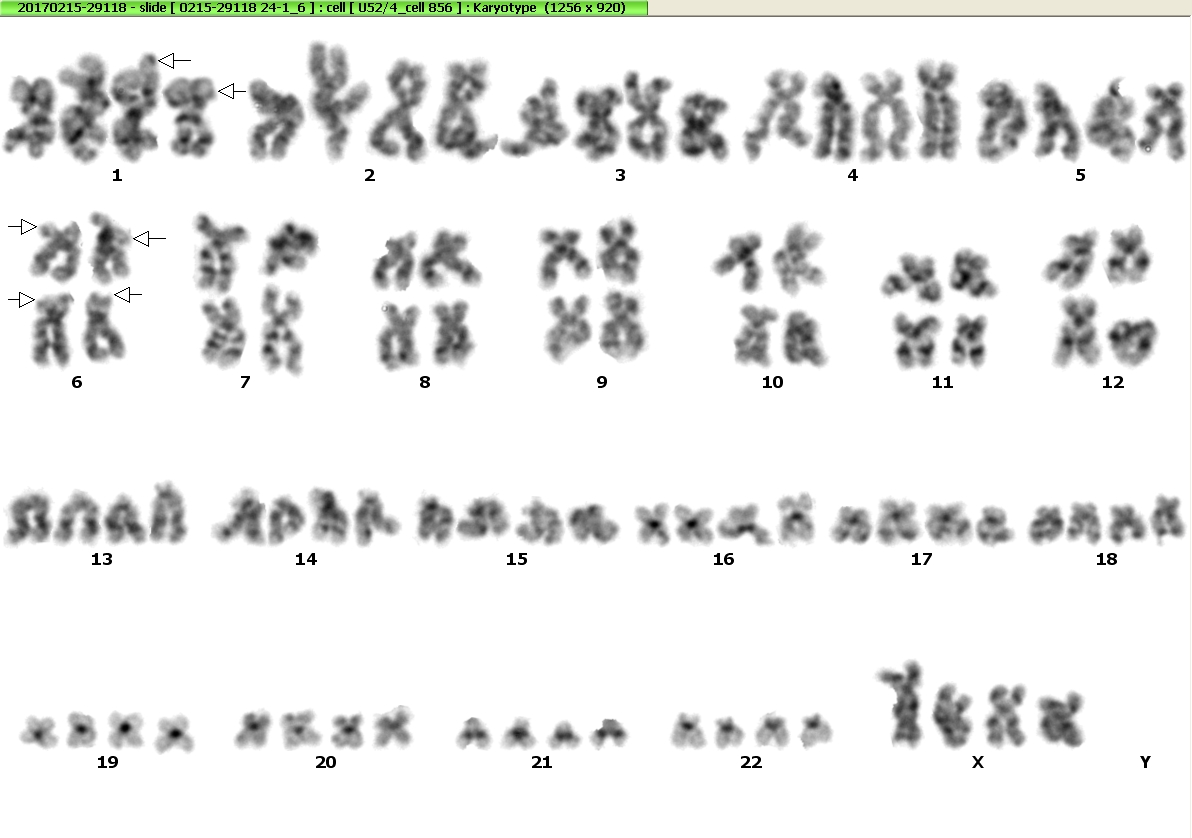 20170215-29118 - slide [ 0215-29118 24-1_6 ] : cell [ U52/4_cell 856 ] : Karyotype (1256 x 920)
1 2 3 4 5
6 7 8 9 10 11 12
13 14 15 16 17 18
19 20 21 22 X Y